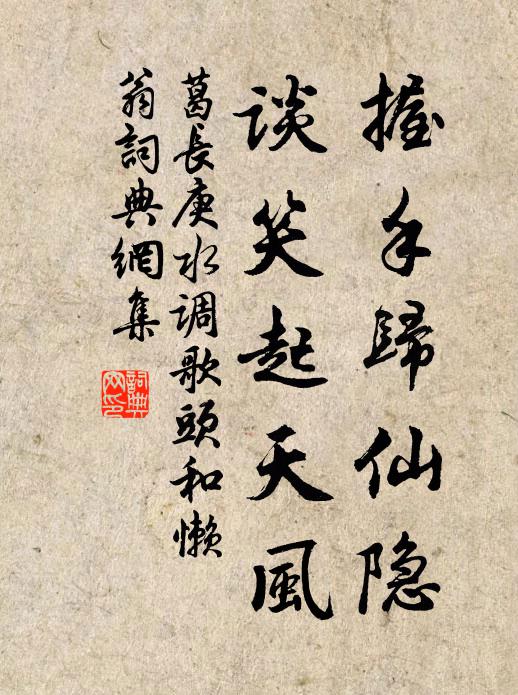 握手歸仙隐
谈笑起天風
葛長庚水调歌頭和懒
翁詞典網集
詞典
网印